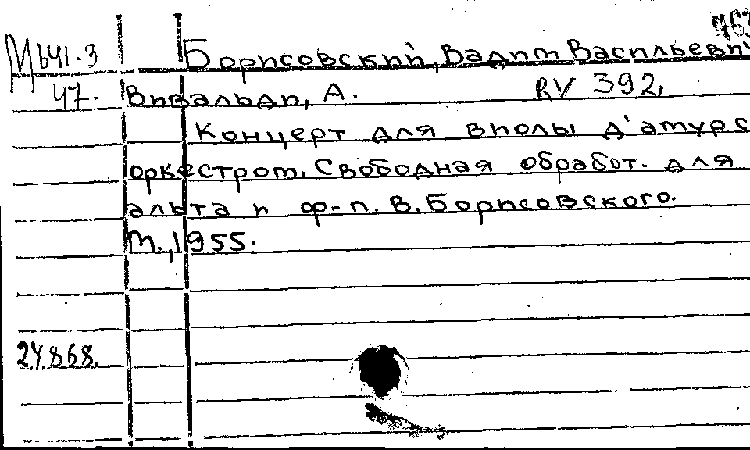 Мb41.3 Борисовский, Вадим Васильеви
47. Вивальди, А. RV 392,
Концерт для виолы д'амурс
оркестром. Свободная обработ. для
альта и ф-п. В. Борисовского.
М., 1955.
24868.